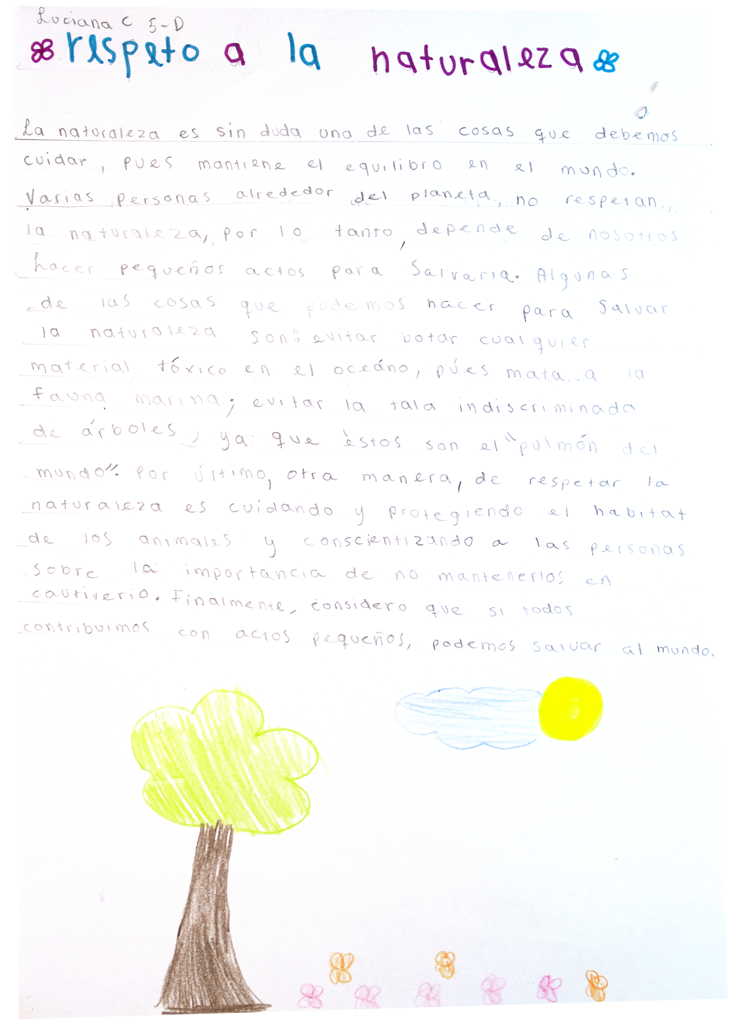 Luciana C 5-D
respeto a la naturaleza
La naturaleza es sin duda una de las cosas que debemos
cuidar, pues mantiene el equilibro en el mundo.
Varias personas alrededor del planeta, no respetan
la naturaleza, por lo tanto, depende de nosotros
hacer pequeños actos para Salvarla. Algunas
de las cosas que podemos hacer para Salvar
la naturaleza son: evitar botar cualquier
material tóxico en el oceáno, púes mata a la
fauna marina; evitar la tala indiscriminada
de árboles, ya que èstos son el "pulmón del
mundo". Por último, otra manera, de respetar la
naturaleza es cuidando y protegiendo el habitat
de los animales y conscientizando a las personas
sobre la importancia de no mantenerlos en
cautiverio. Finalmente, considero que si todos
contribuimos con actos pequeños, podemos salvar al mundo.